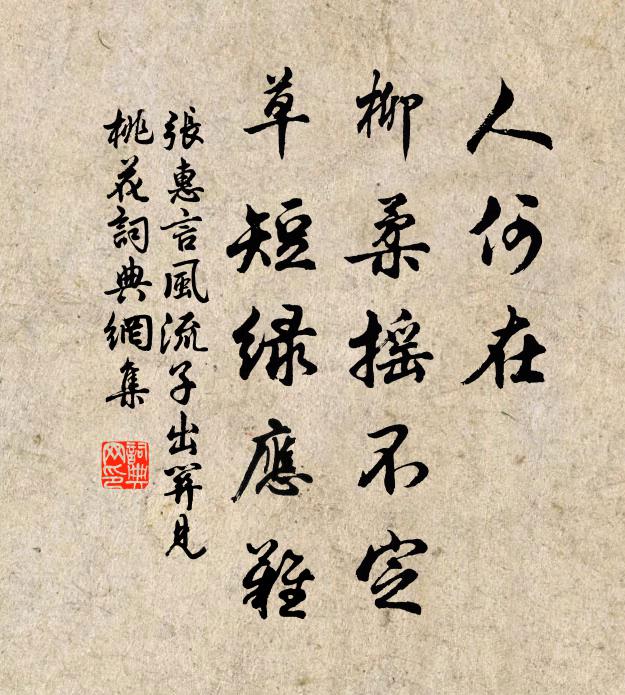 人何在
柳柔摇不定
草短绿應難
張惠言風流子出關見
桃花詞典網集
詞典
网印